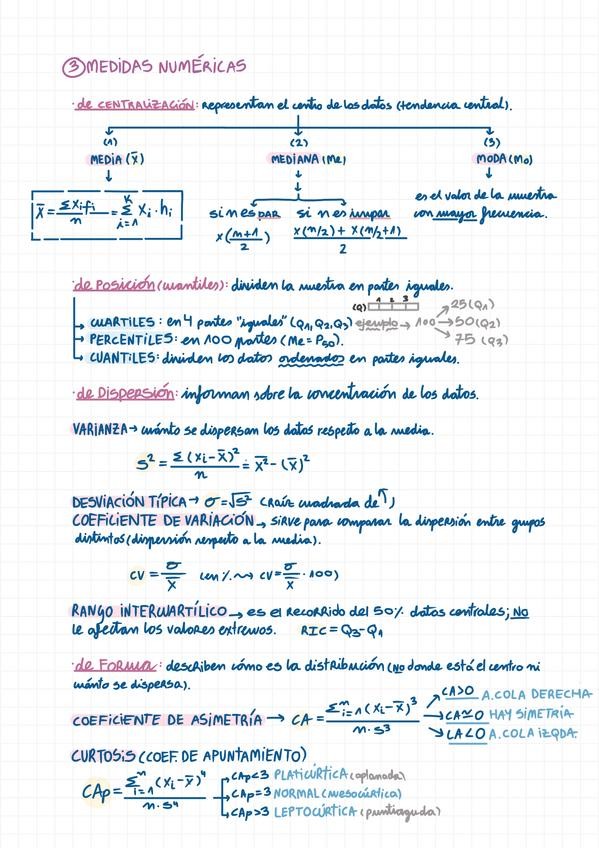 ③ MEDIDAS NUMÉRICAS
· de CENTRALIZACIÓN: representan el centro de los datos (tendencia central).
(1) (2) (3)
MEDIA (x̄) MEDIANA (Me) MODA (Mo)
x̄ = Σxifi/n = Σ(i=1, k) xi · hi
si n es PAR si n es impar
x((n+1)/2) (x(n/2) + x(n/2+1))/2
es el valor de la muestra
con mayor frecuencia.
· de Posición (cuantiles): dividen la muestra en partes iguales.
→ CUARTILES: en 4 partes "iguales" (Q1, Q2, Q3) ejemplo → 100 → 25 (Q1) 50 (Q2) 75 (Q3)
(Q) 1 2 3
→ PERCENTILES: en 100 partes (Me = P50).
→ CUANTILES: dividen los datos ordenados en partes iguales.
· de Dispersión: informan sobre la concentración de los datos.
VARIANZA → cuánto se dispersan los datos respecto a la media.
S² = Σ(xi - x̄)²/n = x̄² - (x̄)²
DESVIACIÓN TÍPICA → σ = √S² (Raíz cuadrada de ↑)
COEFICIENTE DE VARIACIÓN → SIRVE para comparar la dispersión entre grupos
distintos (dispersión respecto a la media).
CV = σ/x̄ (en % → CV = σ/x̄ · 100)
RANGO INTERCUARTÍLICO → es el recorrido del 50% datos centrales; NO
le afectan los valores extremos. RIC = Q3 - Q1
· de Forma: describen cómo es la distribución (No donde está el centro ni
cuánto se dispersa).
COEFICIENTE DE ASIMETRÍA → CA = Σ(i=1, n) (xi - x̄)³/(n · s³)
→ CA>0 A. COLA DERECHA
→ CA≃0 HAY SIMETRÍA
→ CA<0 A. COLA IZQDA.
CURTOSIS (COEF. DE APUNTAMIENTO)
CAp = Σ(i=1, n) (xi - x̄)⁴/(n · s⁴)
→ CAp<3 PLATICÚRTICA (aplanada)
→ CAp=3 NORMAL (mesocúrtica)
→ CAp>3 LEPTOCÚRTICA (puntiaguda)